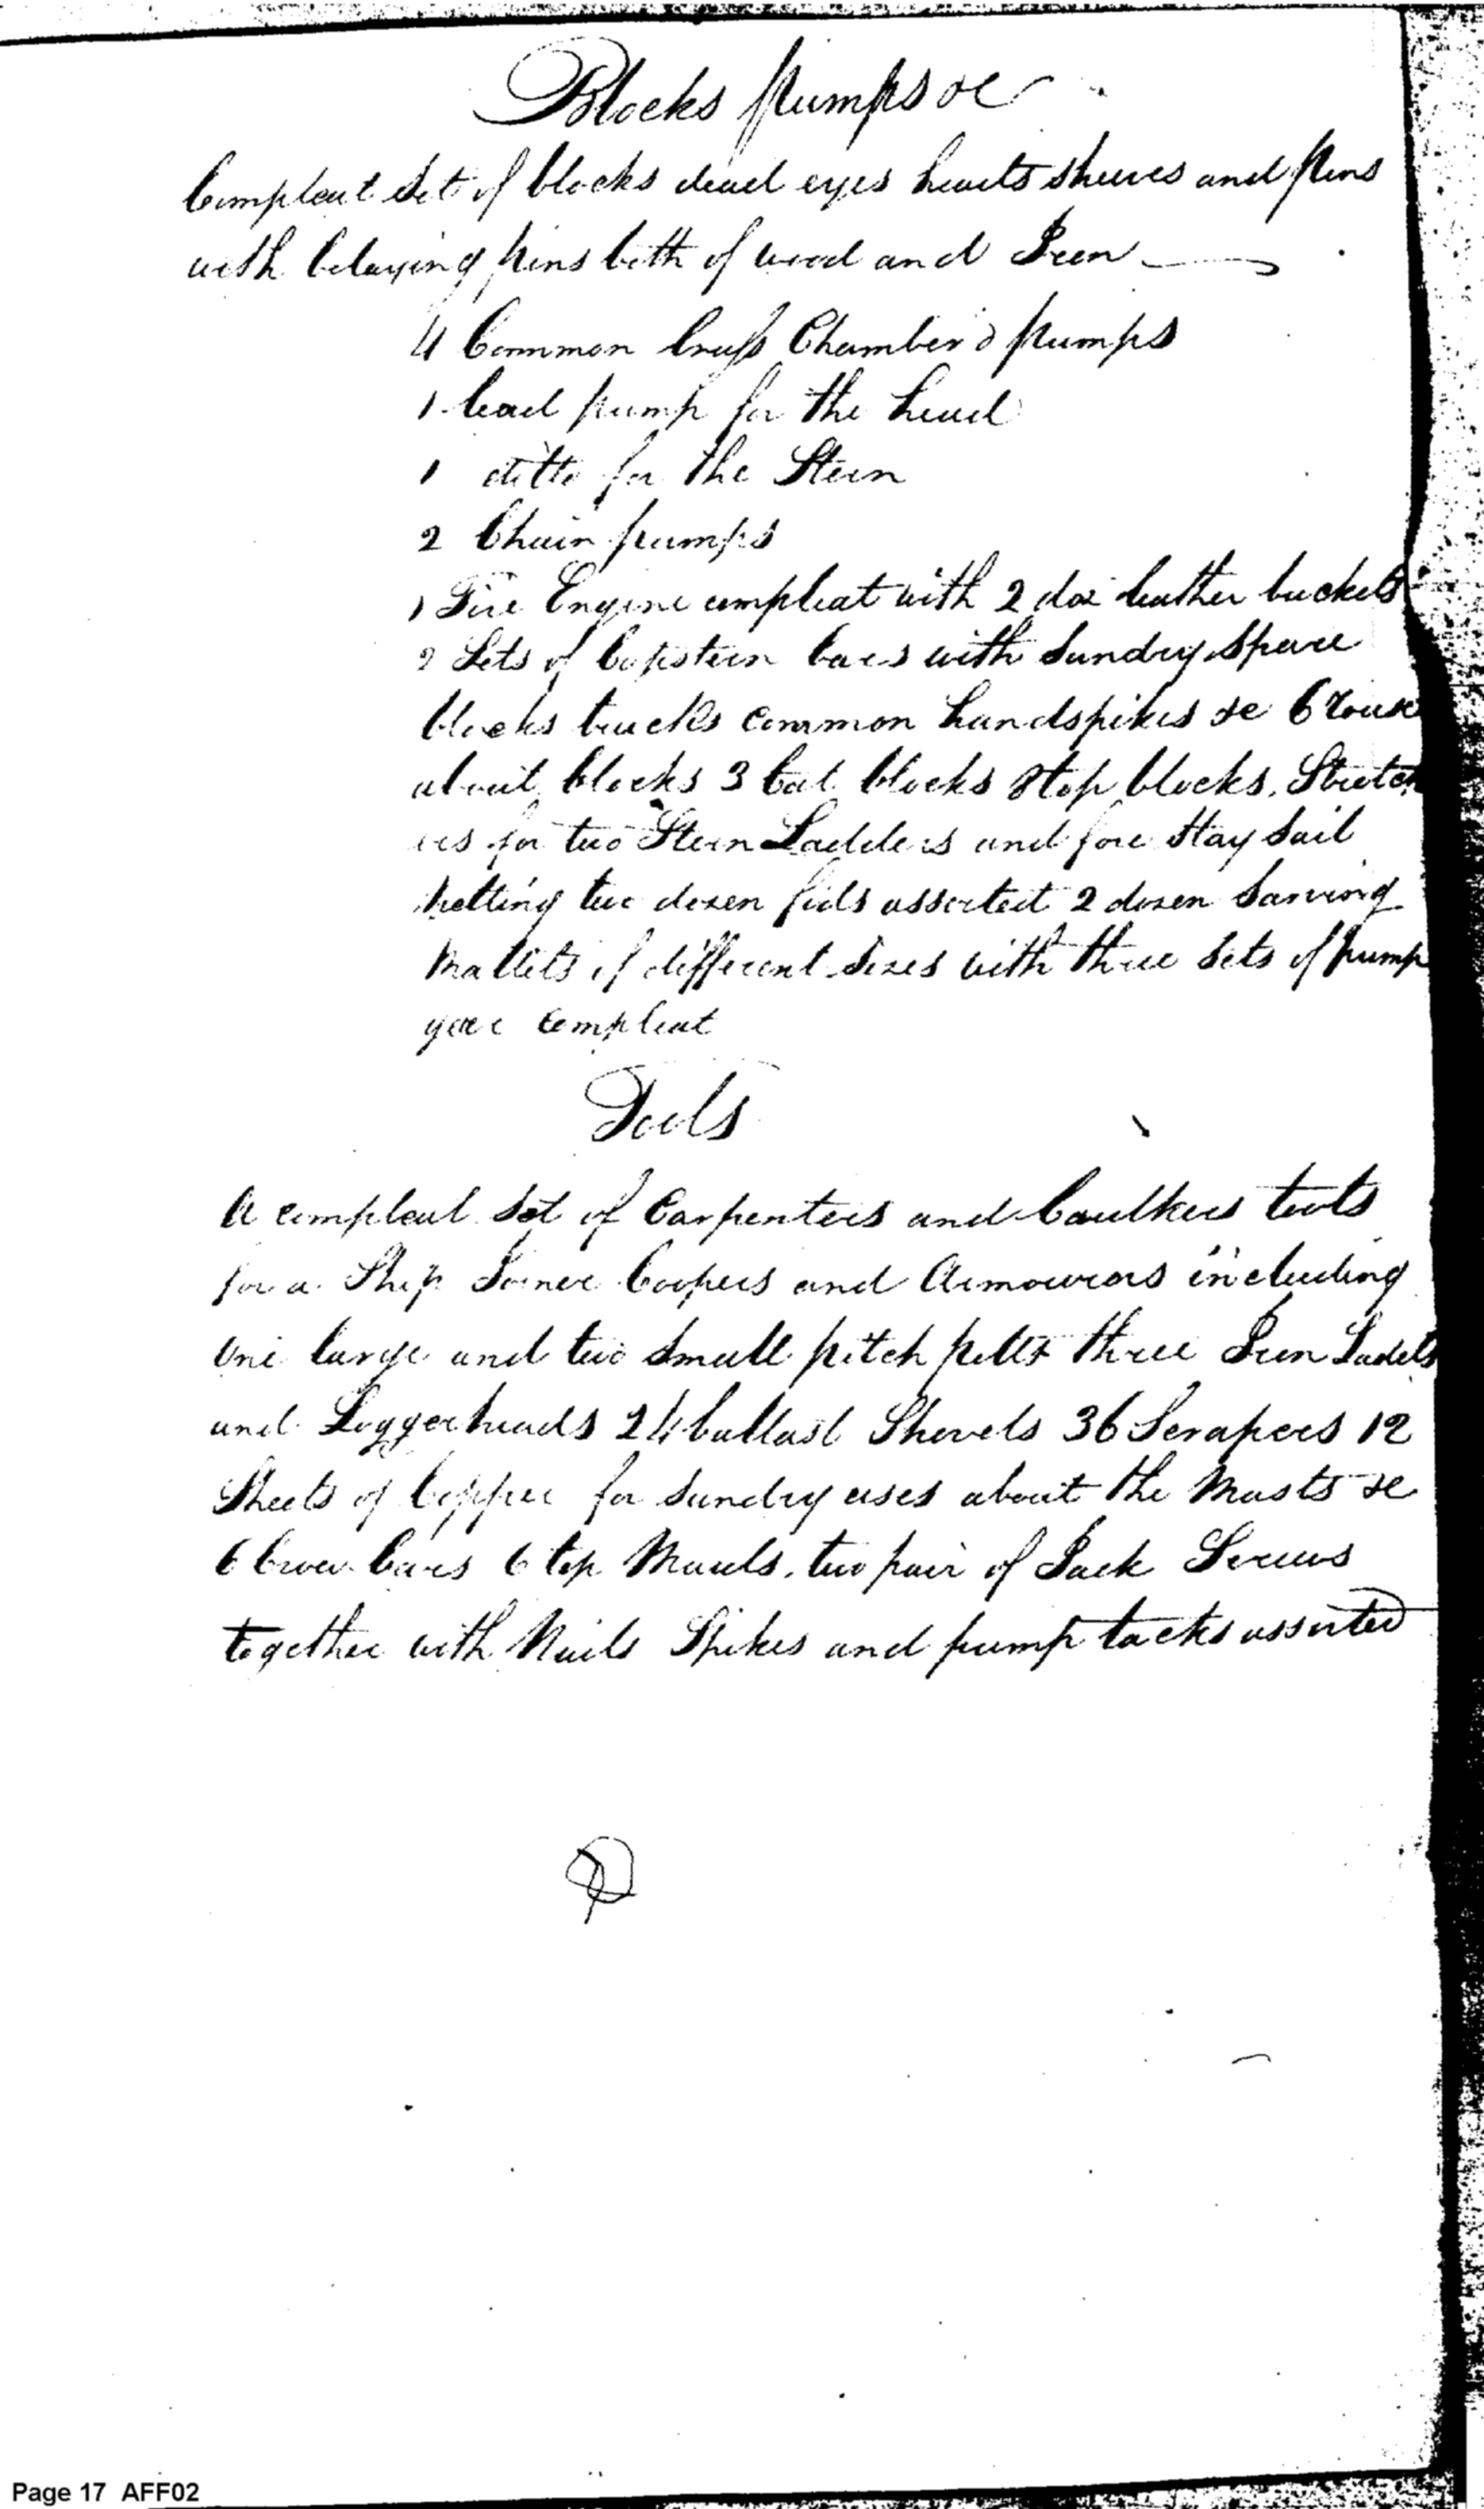 Blocks pumps &c
Compleat Set of blocks dead eyes hearts sheeves and pins
with belaying pins both of wood and Iron
4 Common brass Chamber'd pumps
1 lead pump for the head
1 ditto for the Stern
2 Chain pumps
1 Fire Engine compleat with 2 doz leather buckets
2 Sets of Capstern bars with Sundry Spare
blocks trucks common handspikes &c 6 rouse
about blocks 3 Cat blocks Stop blocks, Stretch
ers for two Stern Ladders and fore Stay Sail
netting two dozen fids assorted 2 dozen Sarving
Mallets of different Sizes with three Sets of pump
gear compleat
Tools
A compleat Set of Carpenters and Caulkers tools
for a Ship Joiner Coopers and Armourers including
One large and two Small pitch potts three Iron Ladels
and Loggerheads 24 ballast Shovels 36 Scrapers 12
Sheets of Copper for Sundry uses about the Masts &c
6 Crow bars 6 top Mauls, two pair of Jack Screws
together with Nails Spikes and pump tacks assorted
Page 17 AFF02